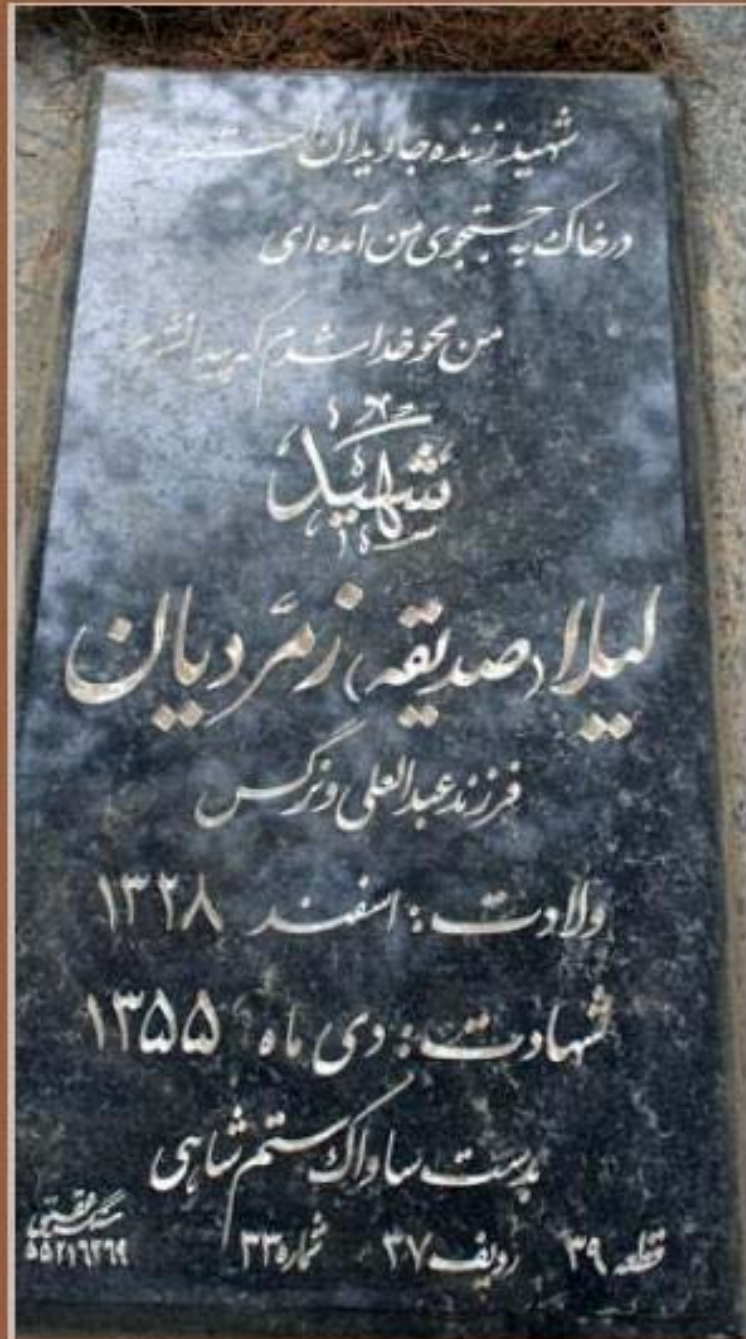 شهید زنده جاویدان است
در خاک به جستجوی من آمده‌ای
من محو خدا شدم که پیدا نشدم
شهید
لیلا (صدیقه) زمرّدیان
فرزند عبدالعلی و نرگس
ولادت: اسفند ۱۳۲۸
شهادت: دی ماه ۱۳۵۵
بدست ساواک ستم شاهی
قطعه ۳۹ ردیف ۳۷ شماره ۳۳
سنگ مقیمی
۵۵۲۱۶۲۶۹